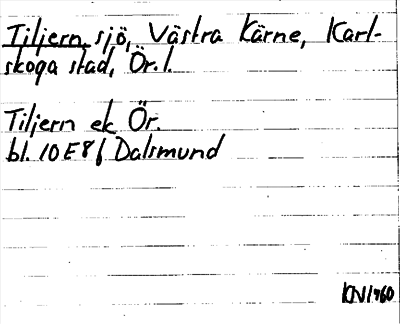 Tiljern, sjö, Västra Kärne, Karl-
skoga stad, Ör. l.
Tiljern ek Ör.
bl. 10 E 8 f Dalsmund
KN 1960